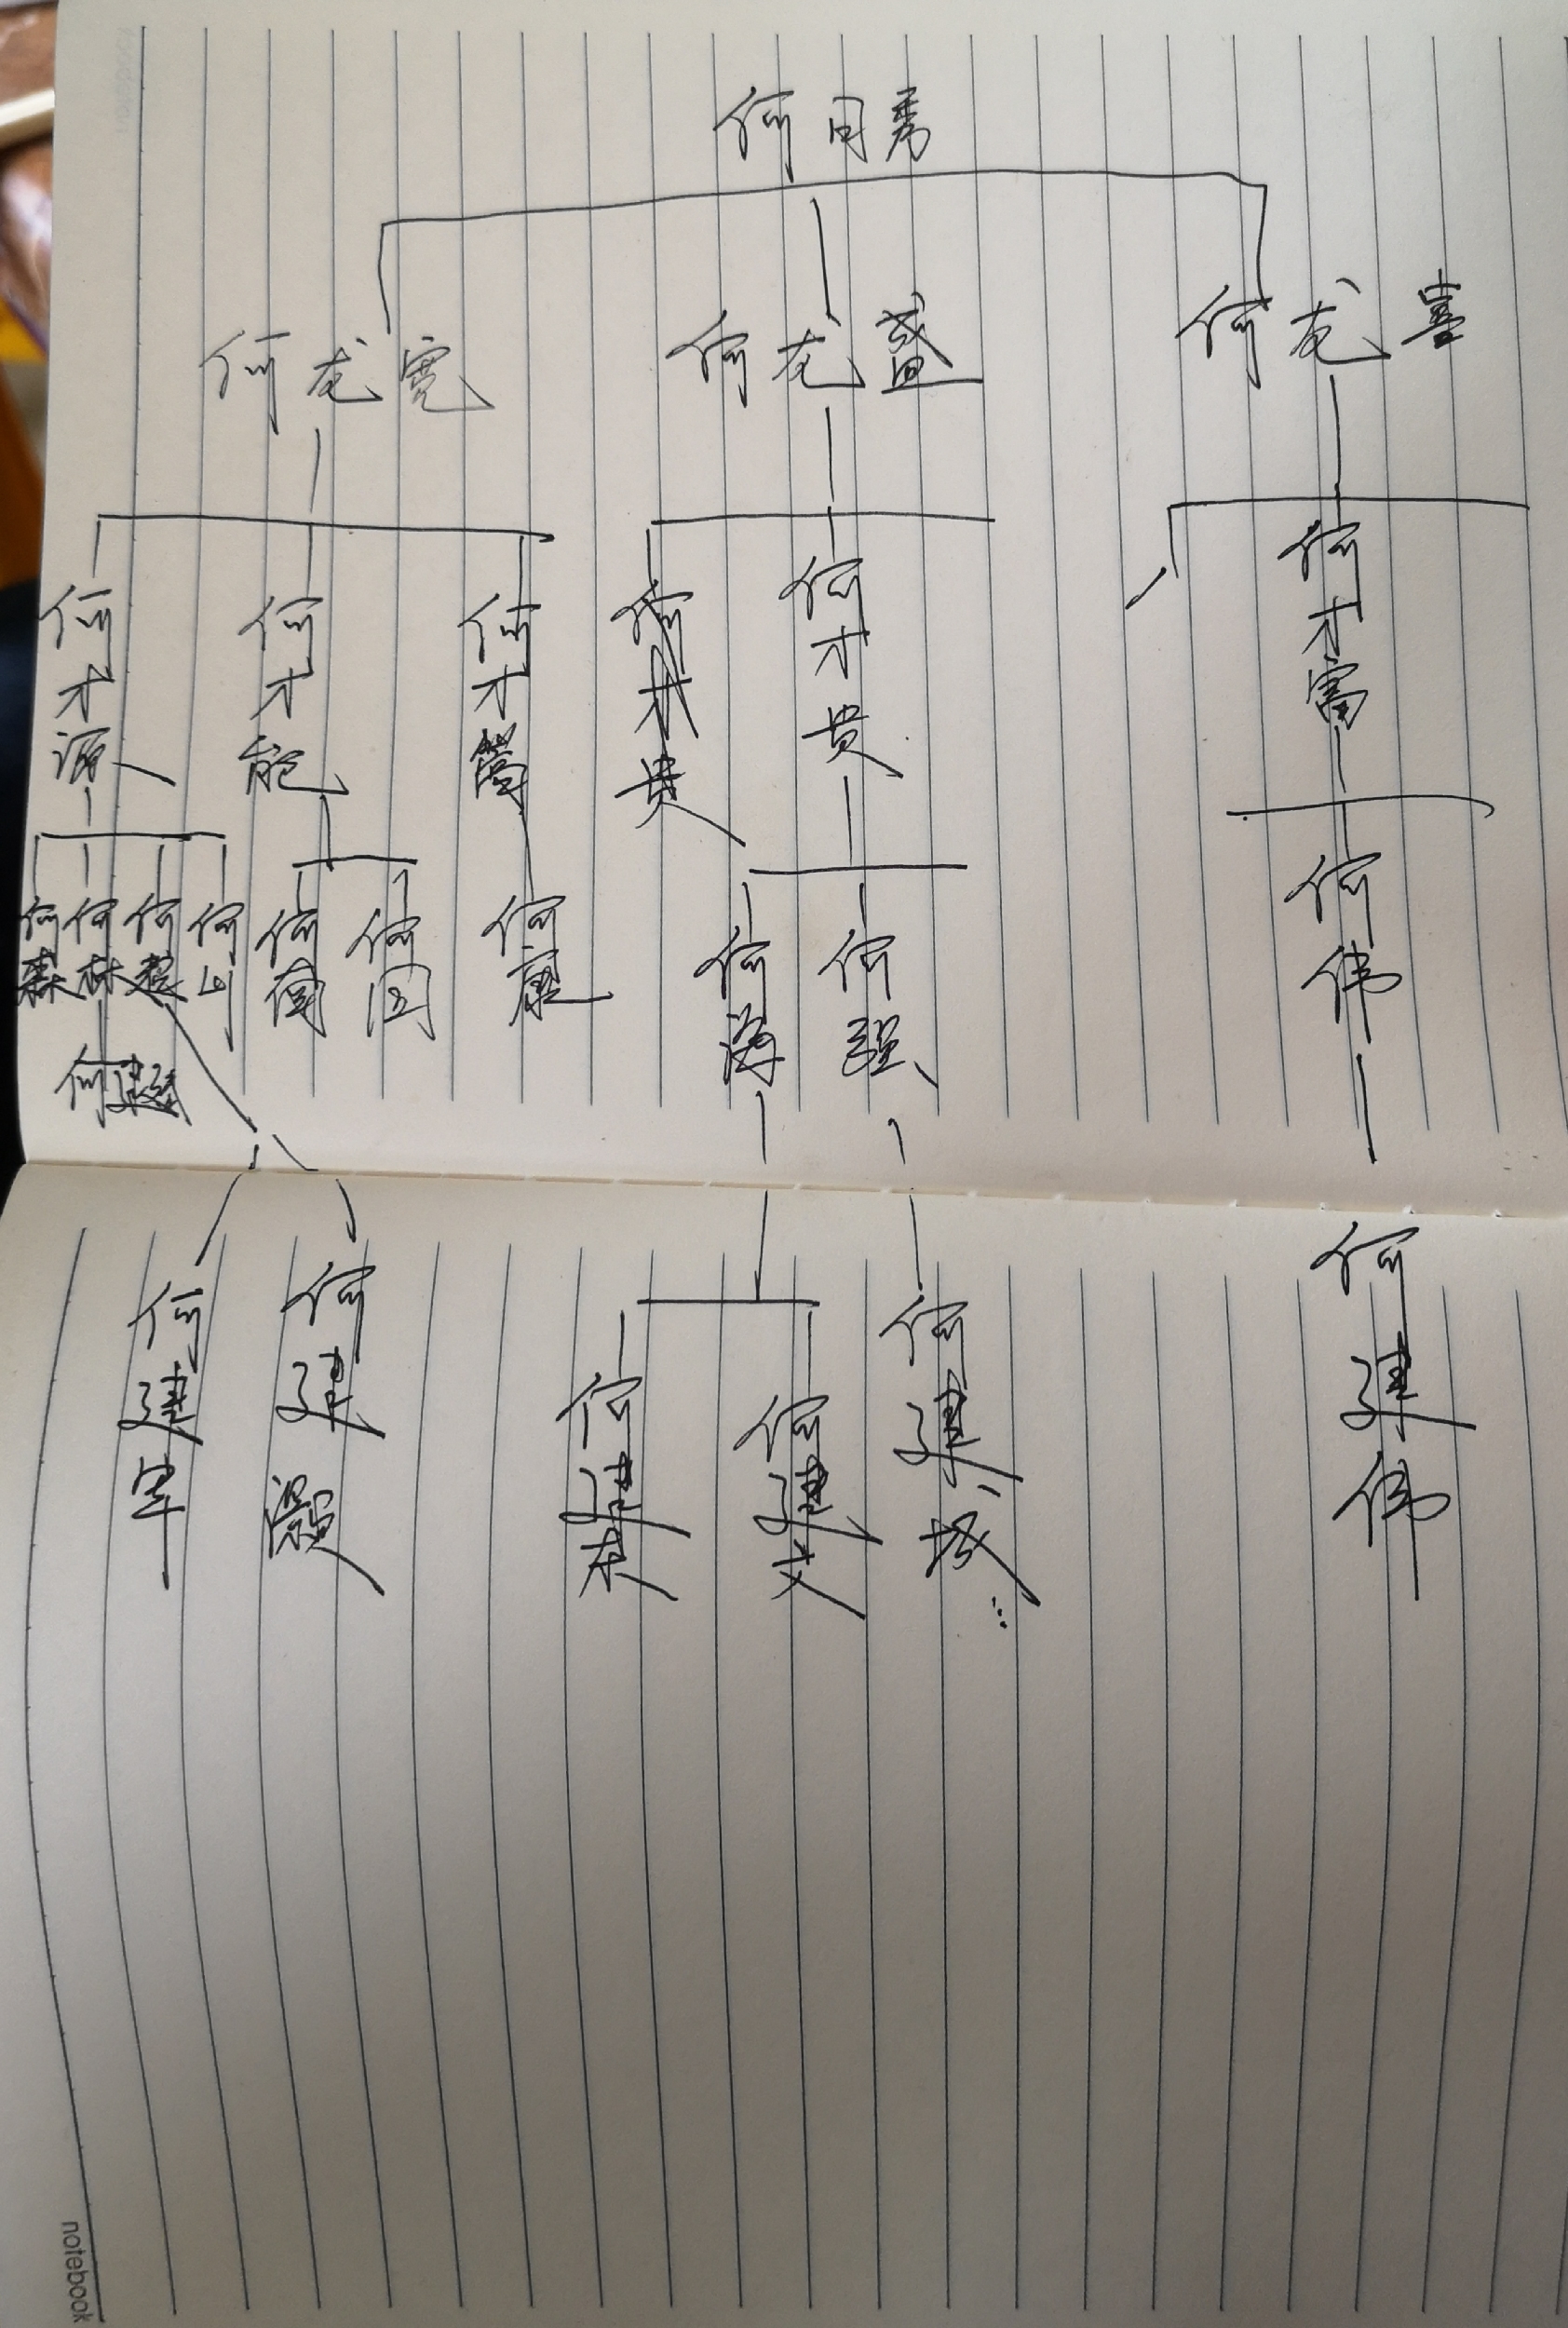 何日秀
何龙宽
何龙盛
何龙喜
何才源
何才能
何才
何才贵
何才贵
何才富
何森
何林
何超
何山
何国
何康
何海
何强
何伟
何建
何建军
何建
何建杰
何建文
何建城
何建伟
notebook